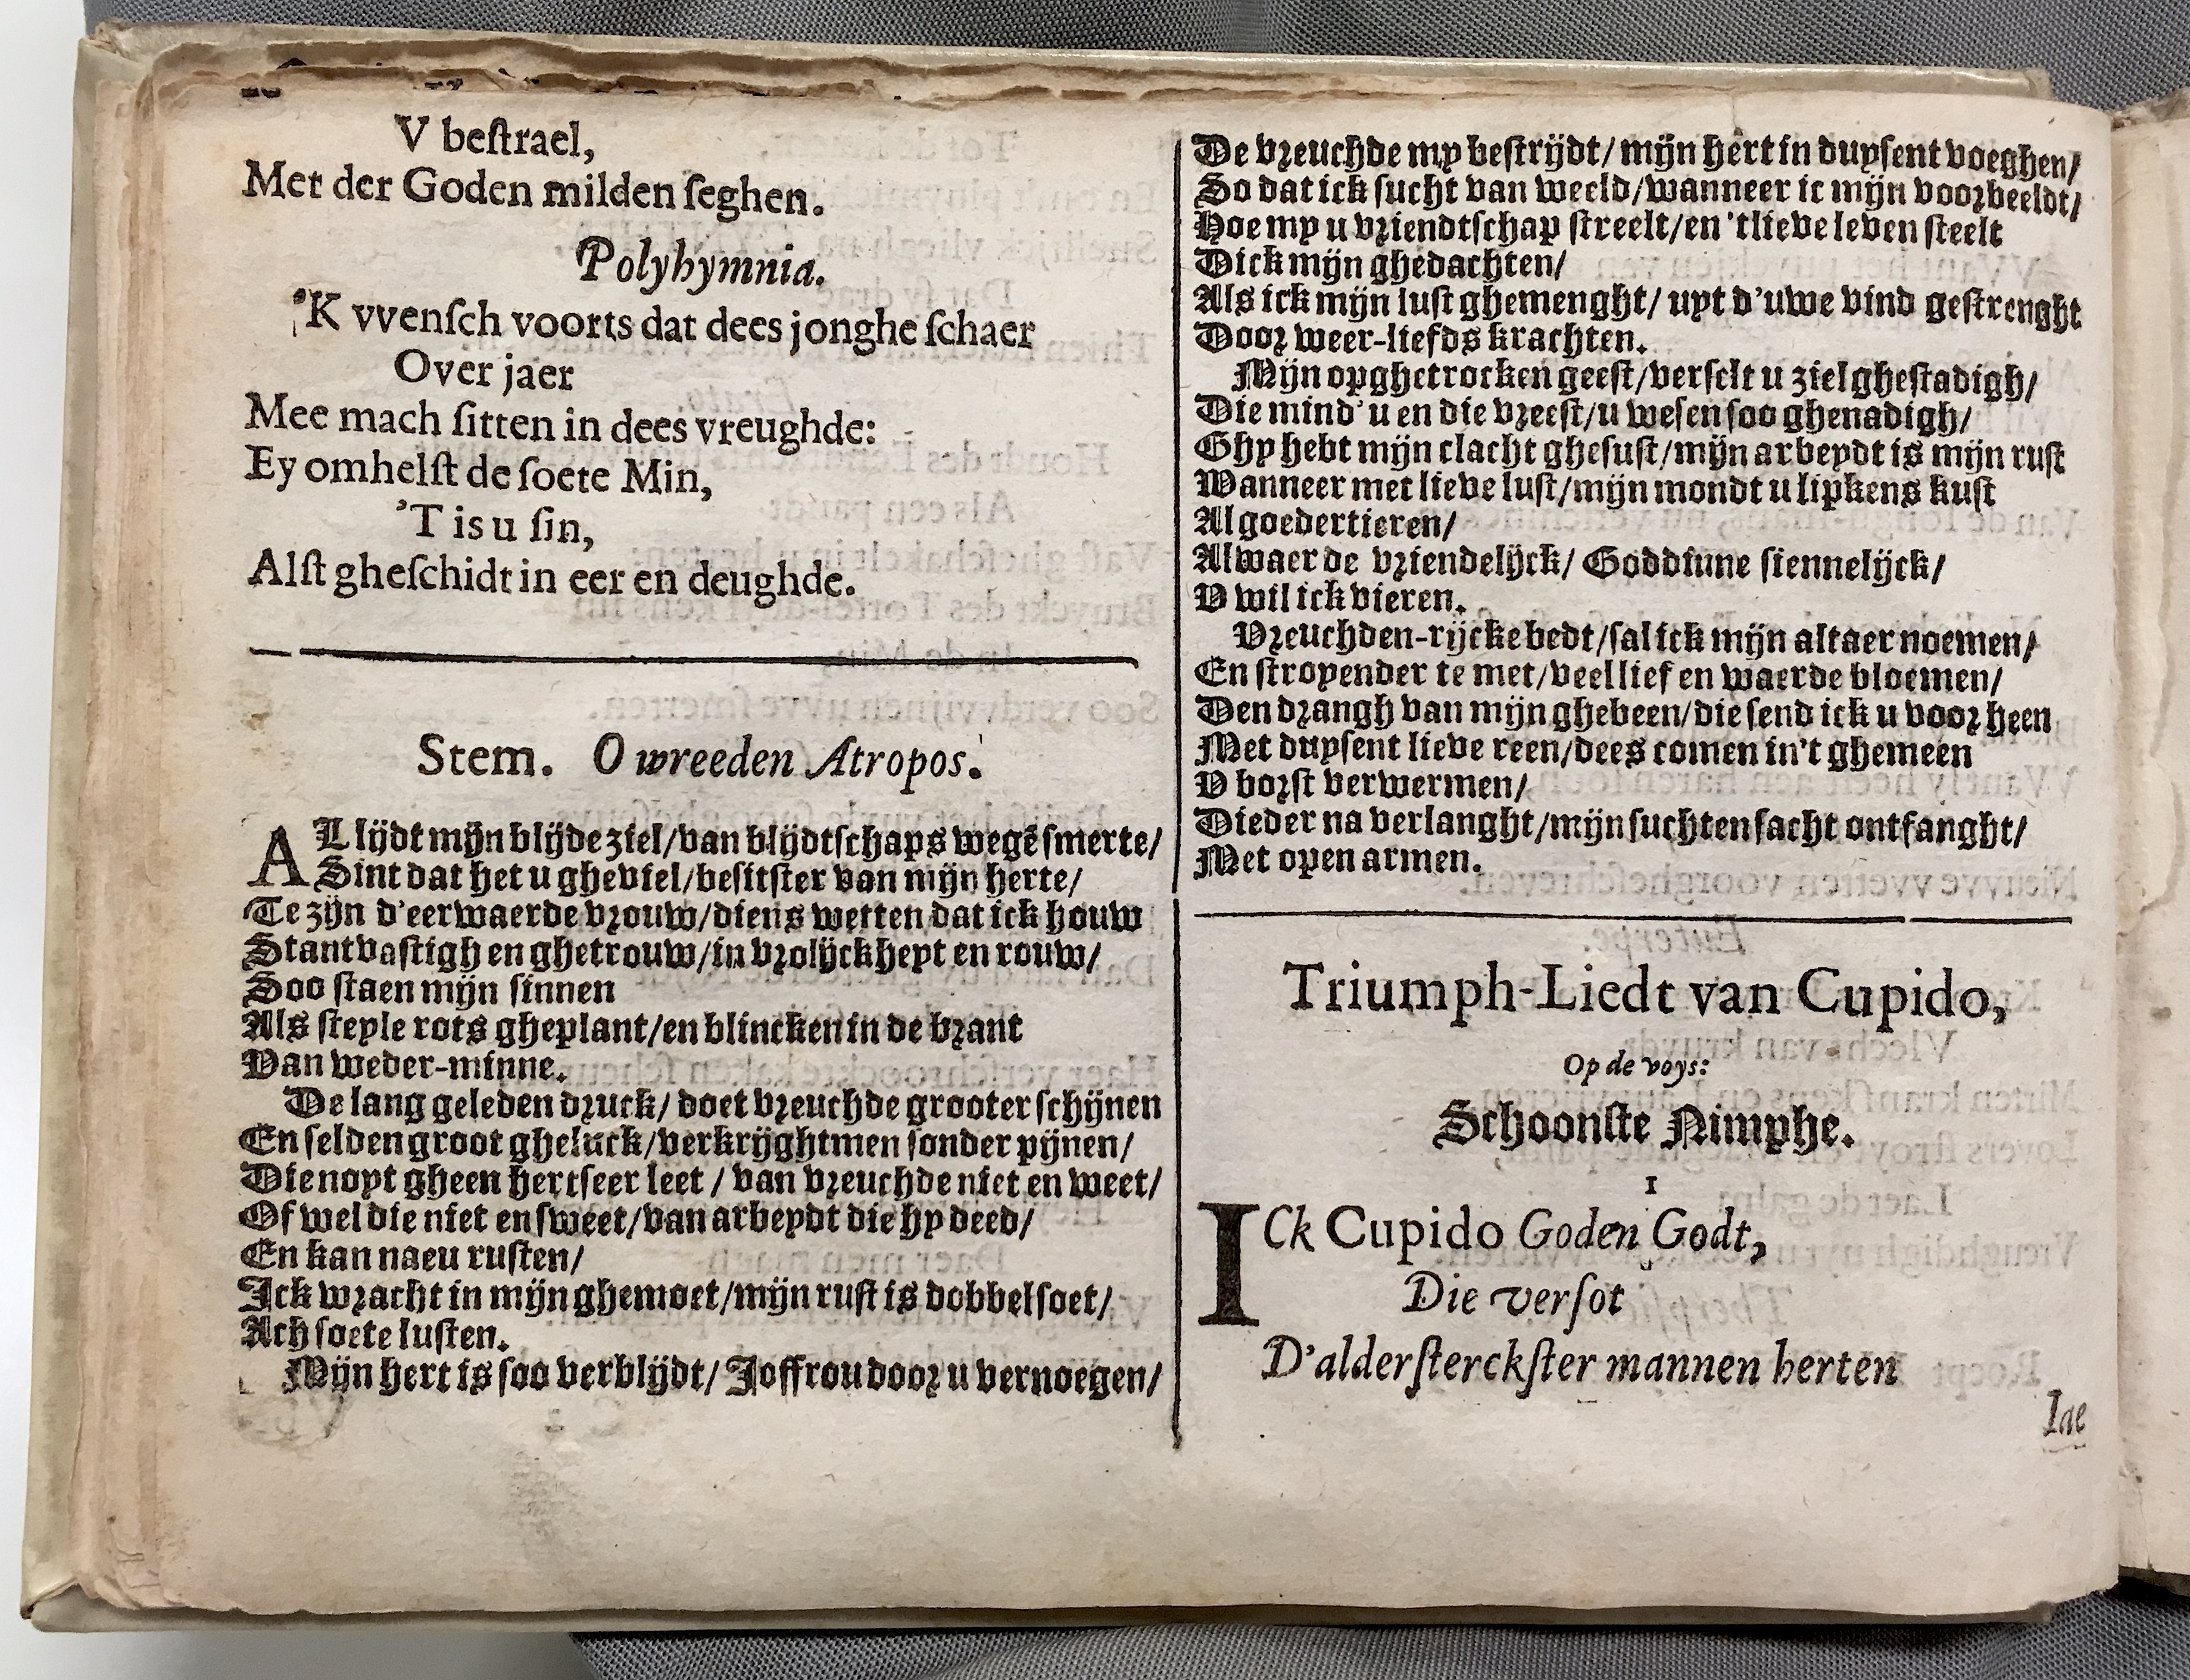 V beſtrael,
Met der Goden milden ſeghen.
Polyhymnia.
'K vvenſch voorts dat dees jonghe ſchaer
Over jaer
Mee mach ſitten in dees vreughde:
Ey omhelſt de ſoete Min,
'T is u ſin,
Alſt gheſchidt in eer en deughde.
Stem. O wreeden Atropos.
AL lijdt mijn blijde ziel/van blijdtſchaps wegē ſmerte/
Sint dat het u gheviel/beſitſter van mijn herte/
Te zijn d'eerwaerde vrouw/diens wetten dat ick houw
Stantvaſtigh en ghetrouw/in vrolijckheyt en rouw/
Soo ſtaen mijn ſinnen
Als ſteyle rots gheplant/en blincken in de brant
Van weder-minne.
De lang geleden druck/ doet vreuchde grooter ſchijnen
En ſelden groot gheluck/verkrijghtmen ſonder pijnen/
Die noyt gheen hertſeer leet / van vreuchde niet en weet/
Of wel die niet en ſweet/van arbeydt die hy deed/
En kan naeu ruſten/
Ick wracht in mijn ghemoet/mijn ruſt is dobbel ſoet/
Ach ſoete luſten.
Mijn hert is ſoo verblijdt/ Joffrou door u vernoegen/
De vreuchde my beſtrijdt/ mijn hert in duyſent voeghen/
So dat ick ſucht van weeld/wanneer ic mijn voorbeeldt/
Hoe my u vriendtſchap ſtreelt/en 'tlieve leven ſteelt
Dick mijn ghedachten/
Als ick mijn luſt ghemenght/ uyt d'uwe vind geſtrenght
Door weer-liefds krachten.
Mijn opghetrocken geeſt/verſelt u ziel gheſtadigh/
Die mind' u en die vreeſt/u weſen ſoo ghenadigh/
Ghy hebt mijn clacht gheſuſt/mijn arbeydt is mijn ruſt
Wanneer met lieve luſt/mijn mondt u lipkens kuſt
Al goedertieren/
Alwaer de vriendelijck/ Goddinne ſiennelijck/
V wil ick vieren.
Vreuchden-rijcke bedt/ſal ick mijn altaer noemen/
En ſtroyender te met/veel lief en waerde bloemen/
Den drangh van mijn ghebeen/die ſend ick u voor heen
Met duyſent lieve reen/dees comen in't ghemeen
V borſt verwermen/
Dieder na verlanght/mijn ſuchten ſacht ontfanght/
Met open armen.
Triumph-Liedt van Cupido,
Op de voys:
Schoonſte Nimphe.
1
ICk Cupido Goden Godt,
Die verſot
D'alderſterckſter mannen herten
Iae